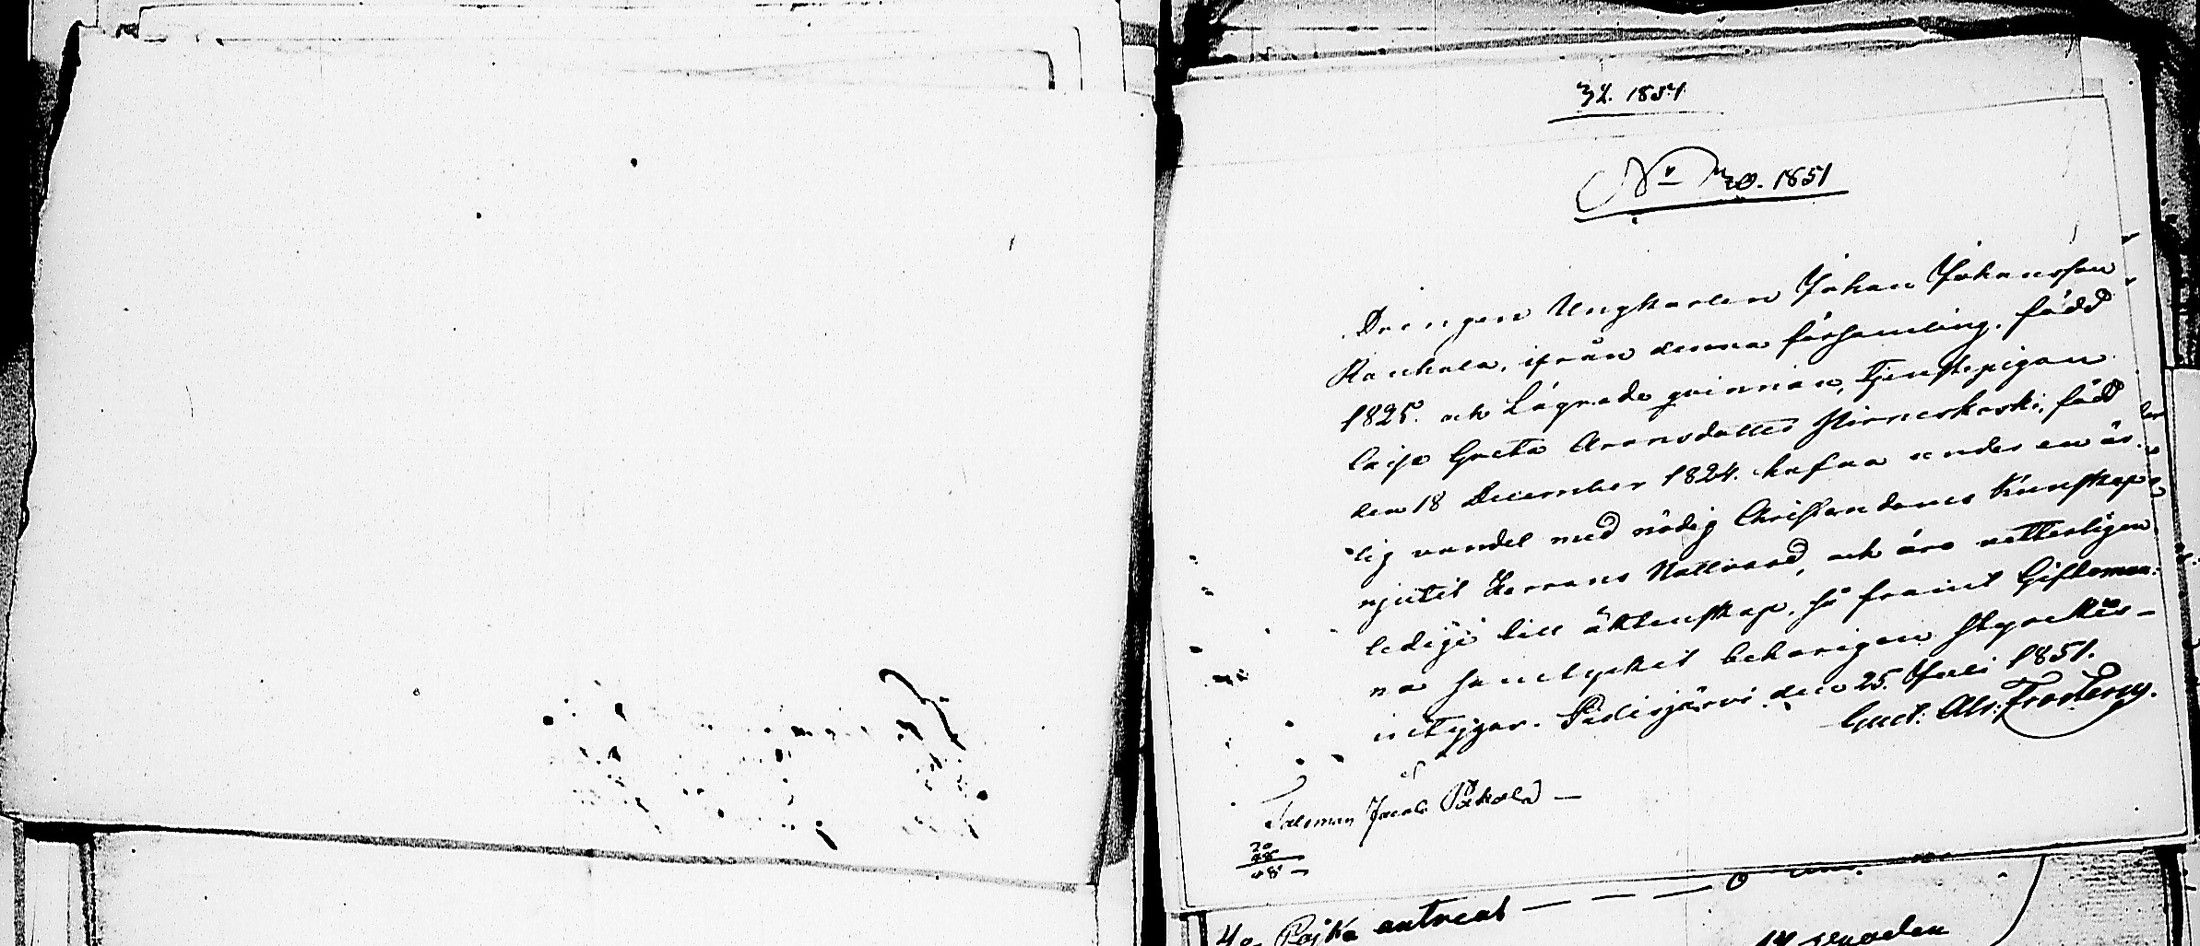 32. 1851
No 20. 1851
Drengen Ungkarlen Johan Johansson
Kankala, ifrån denna församling, född
1825. och Lägrade qvinnan, Tjenstepigan
Caisa Greta Aronsdotter Hirneskoski, född
den 18 December 1824. hafva under en är-
lig vandel med nödig Christendoms kunskap
njutit Herrans Nattvard, och äro vetterligen
ledige till äktenskap, så framt Giftoman-
na samtycket behörigen styrckes
intygar. Pidisjärvi den 25. Juli 1851.
Gust. Alb: Frosterus.
Taleman Jacob Pökölä
20
48
68
Pojka antecat